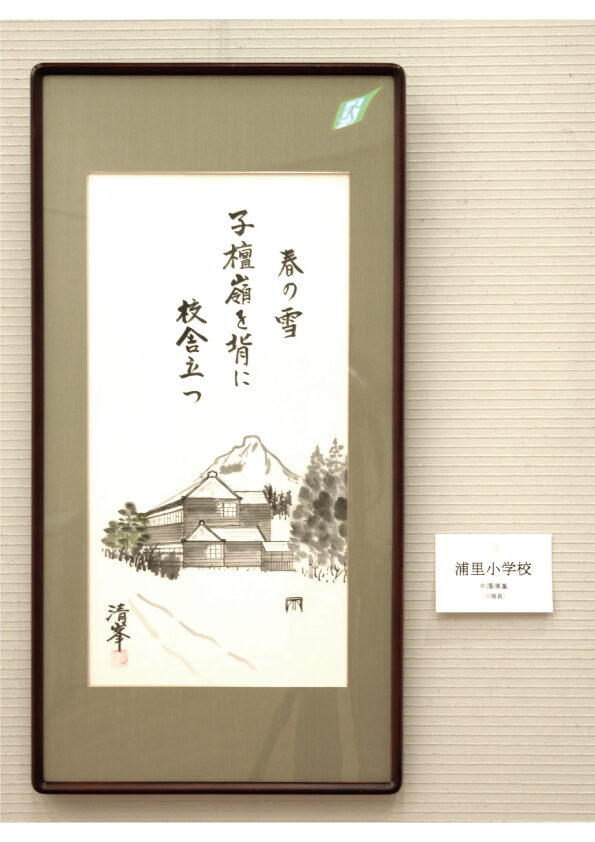 春の雪
子檀嶺を背に
校舎立つ
清峯
浦里小学校